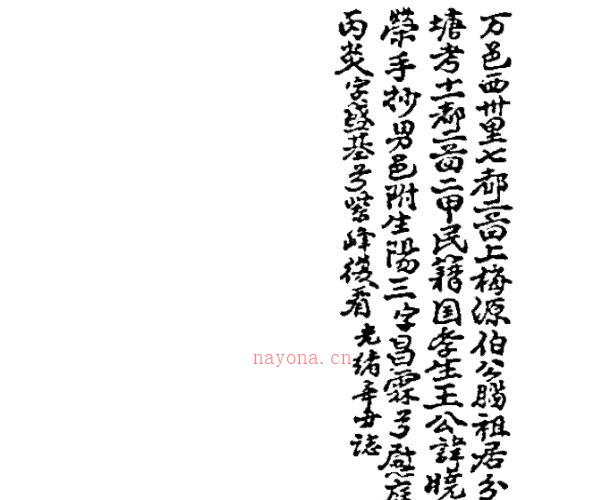 万邑西卅里七都二啚上梅源伯公腦祖居分
塘考十一都二啚二甲民籍国孝生王公諱曉
榮手抄男邑附生陽三字昌霖号慰庭
丙炎字盛基号紫峰後看 光緒辛丑誌
nayona.cn